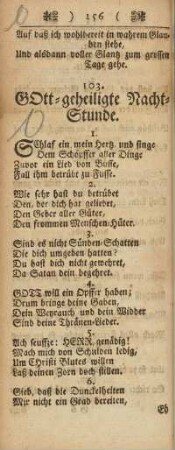 ( 156 )
Auf daß ich wohlbereit in wahrem Glau-
ben stehe,
Und alsdann voller Glantz zum grossen
Tage gehe.
103.
GOtt-geheiligte Nacht-
Stunde.
1.
Schlaf ein mein Hertz, und singe
Dem Schöpffer aller Dinge
Zuvor ein Lied von Busse,
Fall ihm betrübt zu Fusse.
2.
Wie sehr hast du betrübet
Den, der dich hat geliebet,
Den Geber aller Güter,
Den frommen Menschen-Hüter.
3.
Sind es nicht Sünden-Schatten
Die dich umgeben hatten?
Du hast dich nicht gewehret,
Da Satan dein begehret.
4.
GOTT will ein Opffer haben;
Drum bringe deine Gaben,
Dein Weyrauch und dein Widder
Sind deine Thränen-Lieder.
5.
Ach seuffze: HERR, genädig!
Mach mich von Schulden ledig,
Um Christi Blutes willen
Laß deinen Zorn doch stillen.
6.
Gieb, daß die Dunckelheiten
Mir nicht ein Grab bereiten,